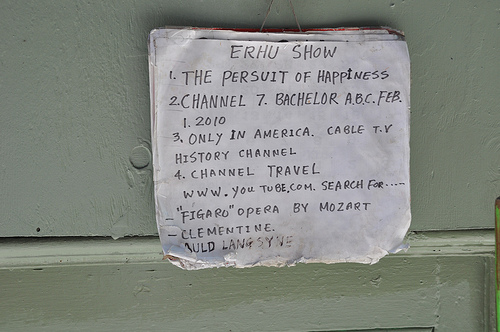 ERHU SHOW
1. THE PERSUIT OF HAPPINESS
2. CHANNEL 7. BACHELOR A.B.C. FEB.
1. 2010
3. ONLY IN AMERICA. CABLE T.V
HISTORY CHANNEL
4. CHANNEL TRAVEL
WWW. YOU TUBE.COM. SEARCH FOR.....
- "FIGARO" OPERA BY MOZART
- CLEMENTINE.
AULD LANGSYNE